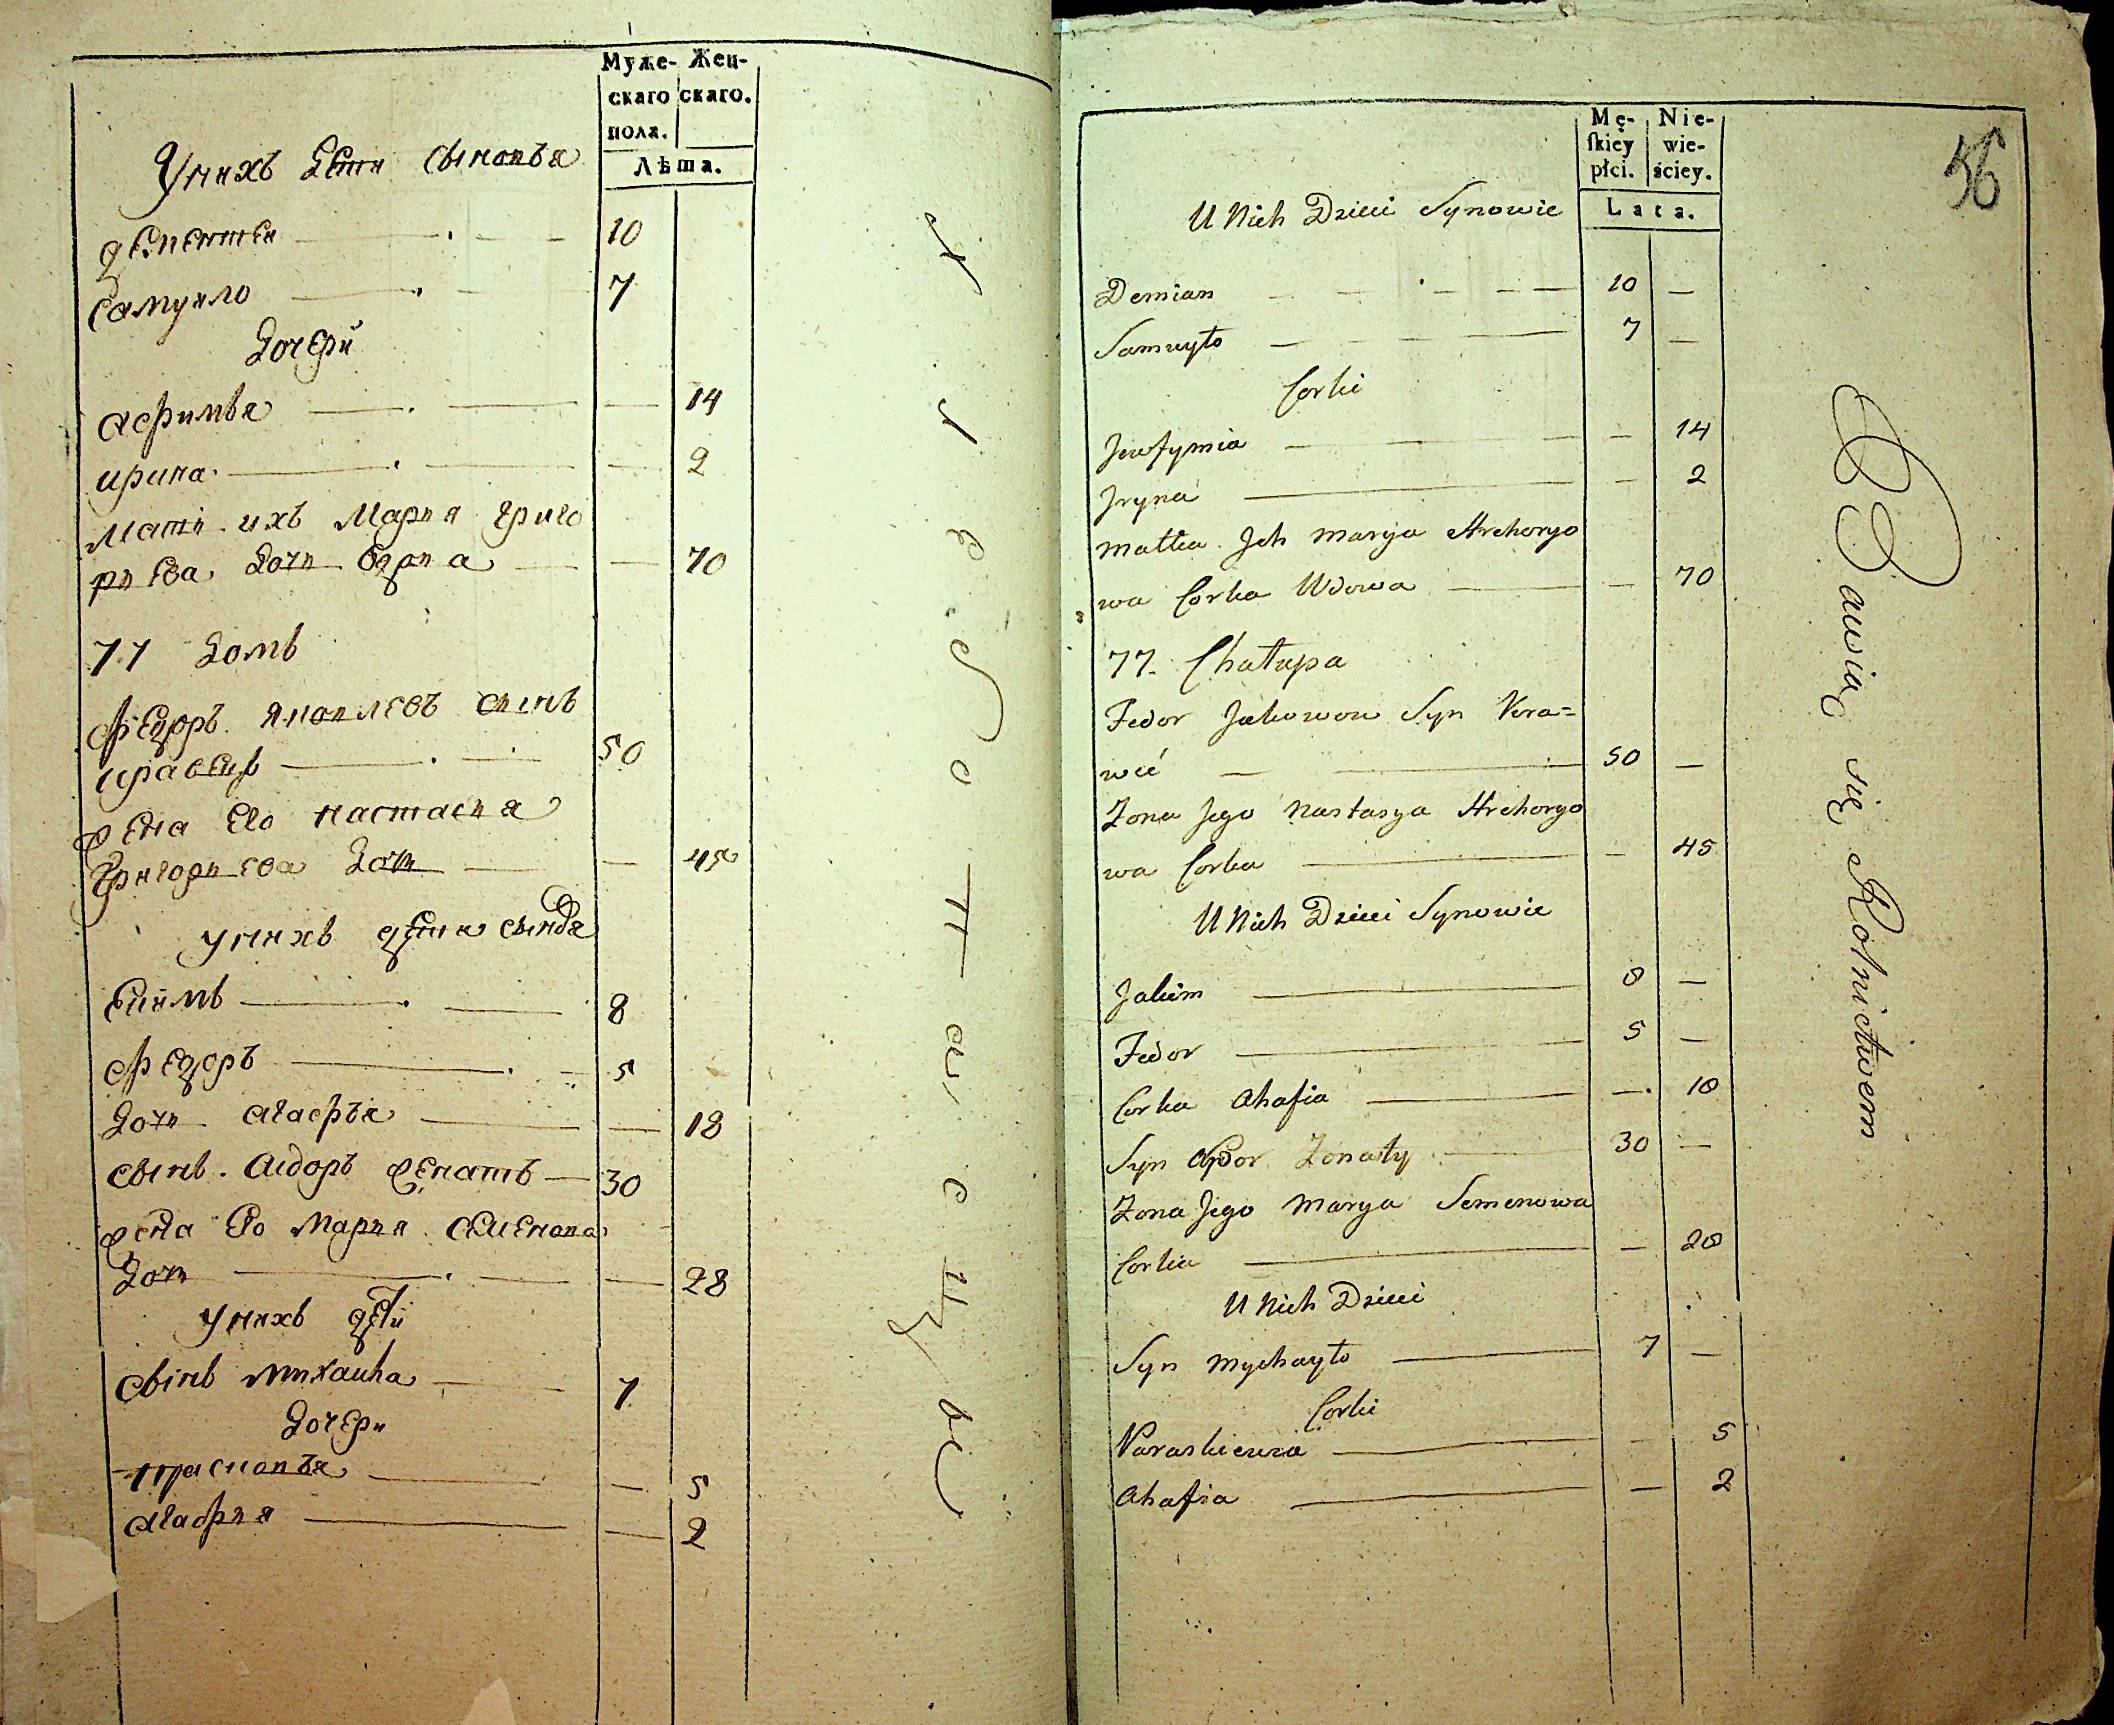 Муже- Жен-
скаго скаго.
пола.
Лѣта.
Унихъ дети сыновья
дементеи 10
самуило 7
дочери
афимья 14
ирина 2
мать ихъ Мария Григо
риева дочь вдова 70
77 домъ
федоръ яковлевъ сынъ
кравецъ 50
жена его настасия
григориева дочь 45
унихъ дети сыновя
Екимъ 8
федоръ 5
дочь агафья 18
сынъ Сидоръ женатъ 30
жена его Мария семенова
дочь 28
унихъ дети
сынъ михаила 7
дочери
прасковья 5
агафия 2
56
Mę- Nie-
skiey wie-
płci. ściey.
Lata.
U Nich Dzieci Synowie
Demian 10 —
Samuyło 7 —
Corki
Jewfymia — 14
Jryna — 2
Matka Jch Marya Hrehoryo
wa Corka Wdowa — 70
77. Chałupa
Fedor Jakowow Syn Kra=
wiec 50 —
Zona Jego Nastasya Hrehoryo
wa Corka — 45
U Nich Dzieci Synowie
Jakim 8 —
Fedor 5 —
Corka Ahafia — 18
Syn Zonaty 30 —
Zona Jego Marya Semenowa
Corka — 28
U Nich Dzieci
Syn Mychayło 7 —
Corki
Paraskiewia — 5
Ahafia — 2
Bawią się Rolnictwem